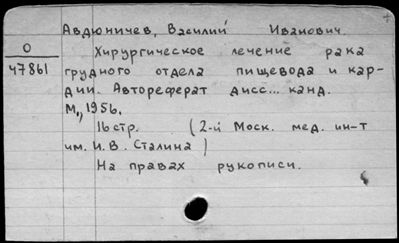 Авдюничев, Василий Иванович.
О
47861
Хирургическое лечение рака
грудного отдела пищевода и кар-
дии. Автореферат дисс... канд.
М., 1956.
16 стр. (2-й Моск. мед. ин-т
им. И.В. Сталина)
На правах рукописи.